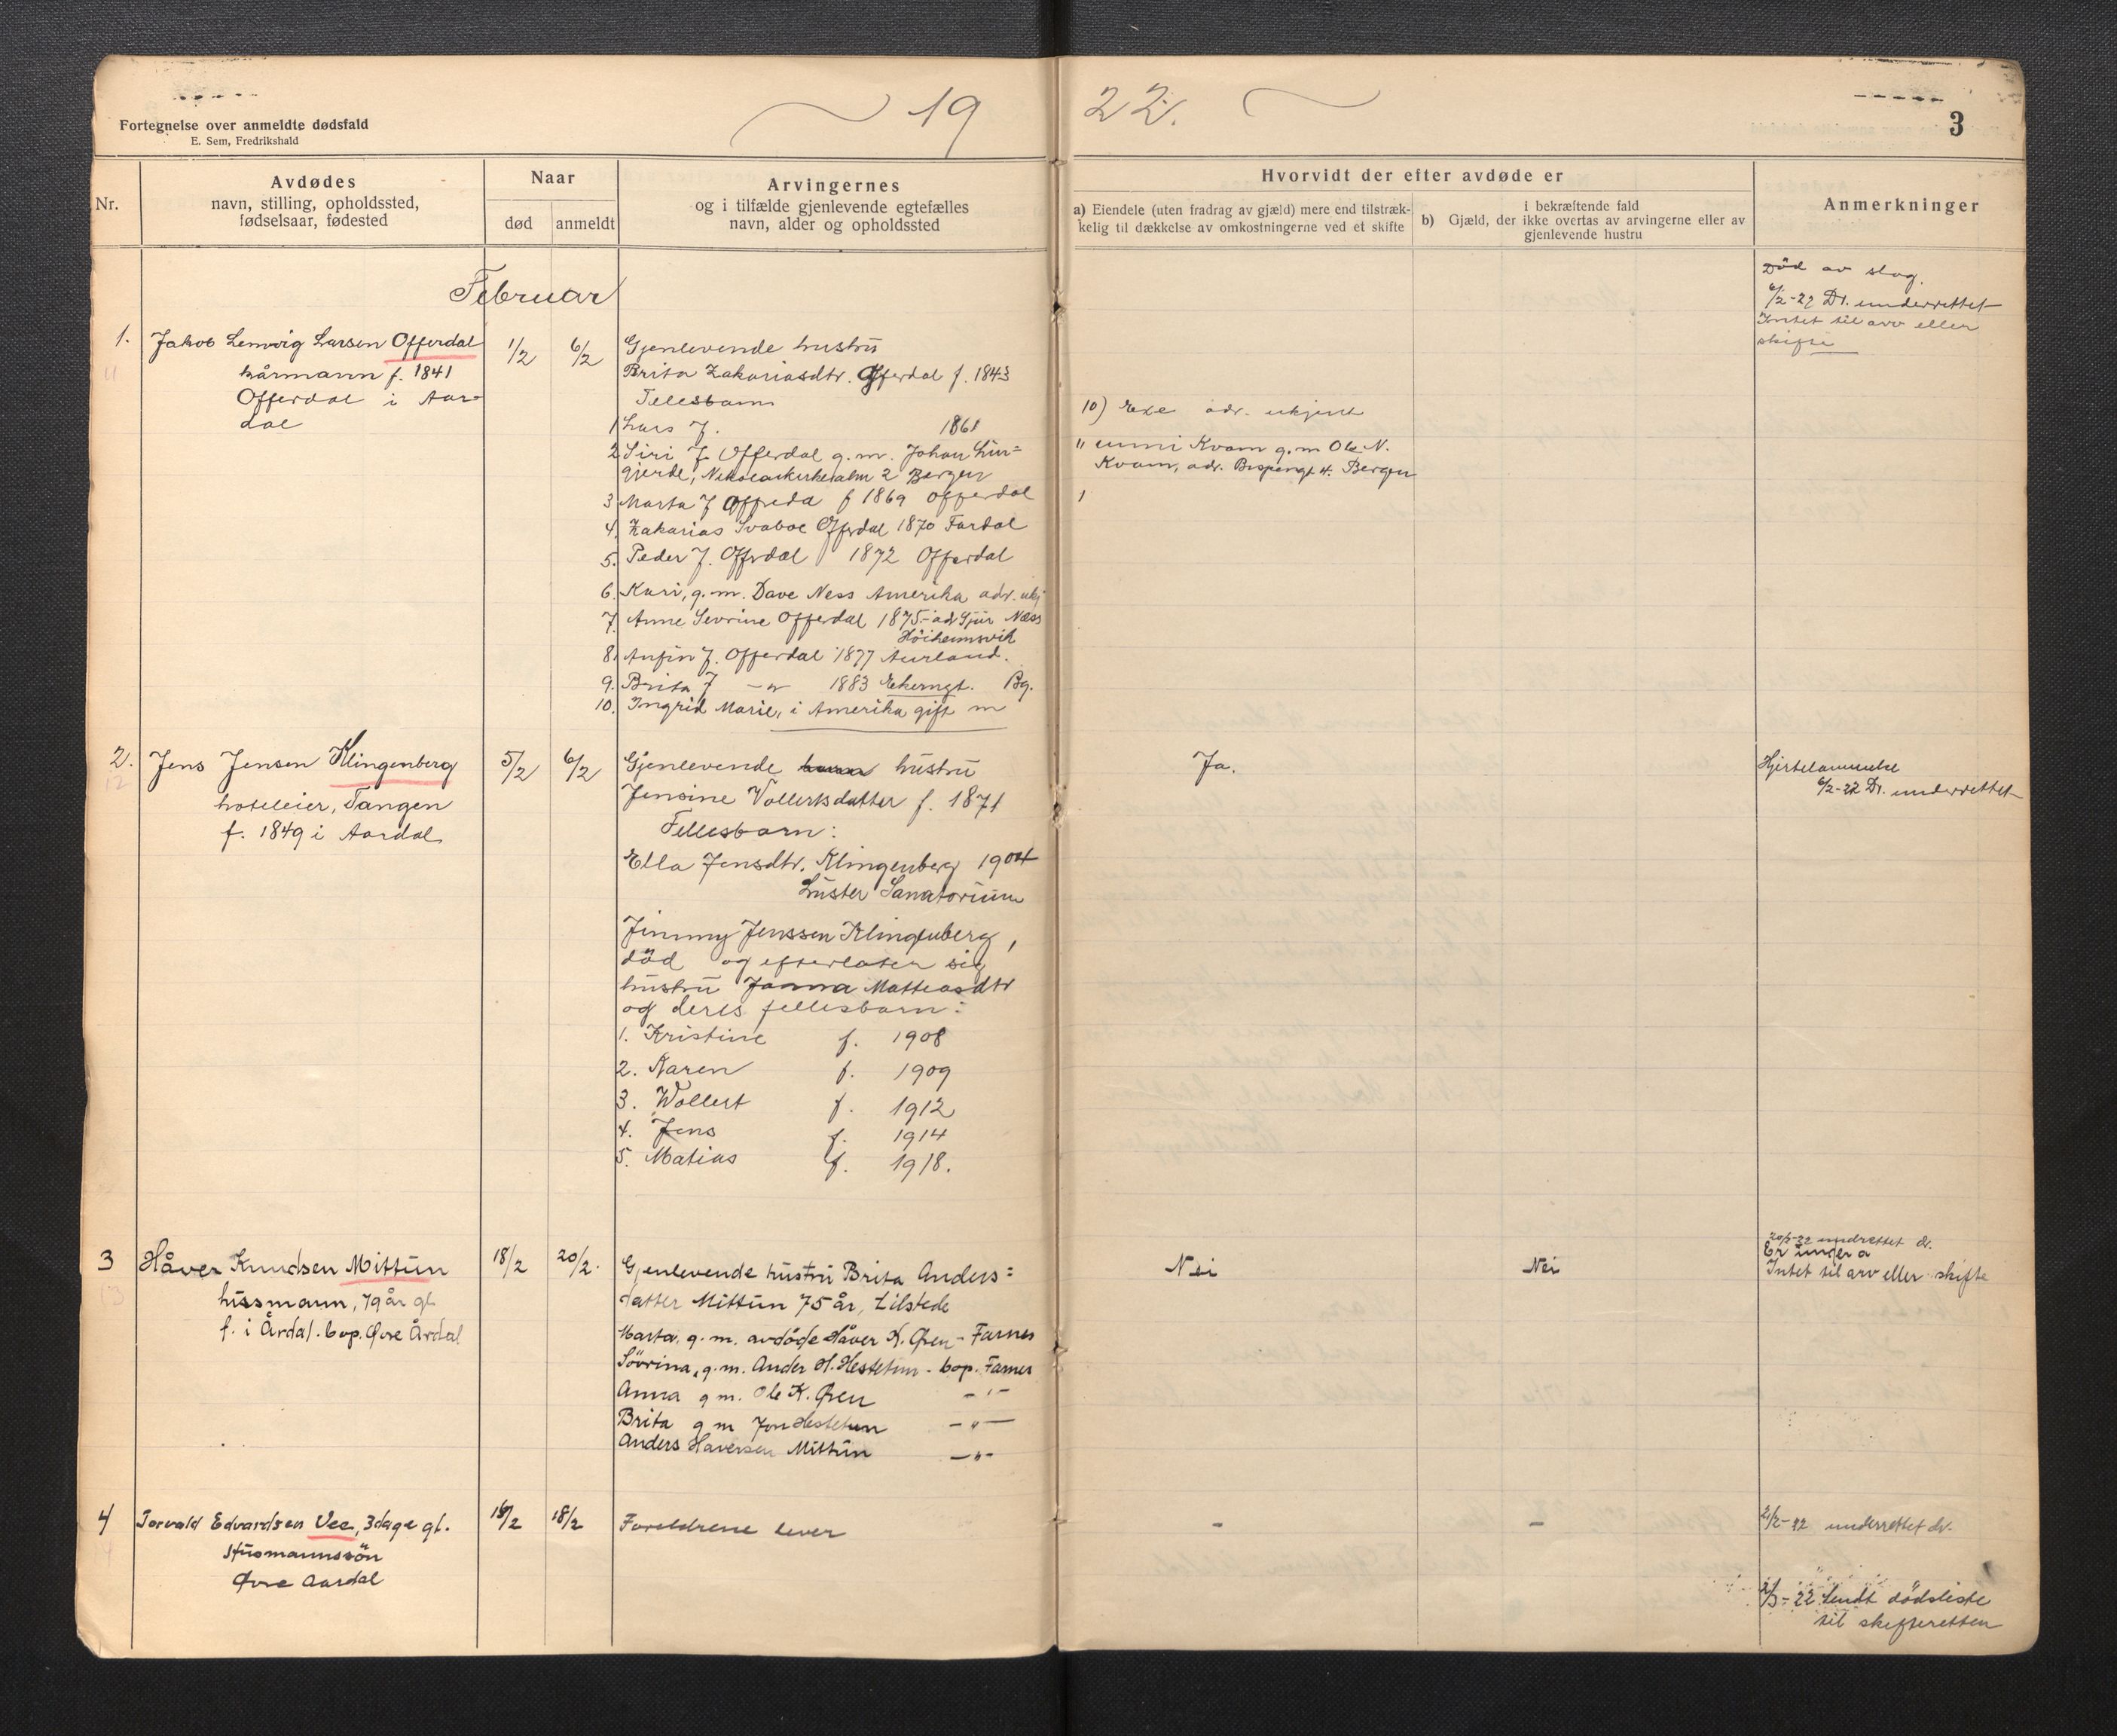 Fortegnelse over anmeldte dødsfald
E. Sem, Fredrikshald
19
22.
3
Nr.
Avdødes
navn, stilling, opholdssted,
fødselsaar, fødested
Naar
død
anmeldt
Arvingernes
og i tilfælde gjenlevende egtefælles
navn, alder og opholdssted
Hvorvidt der efter avdøde er
a) Eiendele (uten fradrag av gjæld) mere end tilstræk-
kelig til dækkelse av omkostningerne ved et skifte
i bekræftende fald
b) Gjæld, der ikke overtas av arvingerne eller av
gjenlevende hustru
Anmerkninger
Februar
1.
Jakob Lemvig Larsen Offerdal
kårmann f. 1841
Offerdal i Aar-
dal
1/2
6/2
Gjenlevende hustru
Brita Zakariasdtr. Offerdal f. 1843
Fellesbarn
1 Lars J. 1861
2 Siri J. Offerdal g.m. Johan Lin=
gjerde, Nikolaikirkealm 2 Bergen
3 Marta J Offerdal f 1869 Offerdal
4. Zakarias Offerdal 1870 Fardal
5. Peder J. Offerdal 1872 Offerdal
6. Kari, g.m. Dave Ness Amerika adr. ukj
7. Anne Sevrine Offerdal 1875- adr Sjur Næss
Høiheimsvik
8. Anfin J. Offerdal 1877 Aurland.
9. Brita J -"- 1883 Ekerngt. Bg.
10. Ingrid Marie, i Amerika gift m
10) adr. ukjent
" Kvam g.m Ole N.
Kvam, adr. Bispengt 4. Bergen
1
Død av slag.
6/2-22 Dr. underrettet
Intet til arv eller
skifte
2.
12
Jens Jensen Klingenberg
hoteleier, Tangen
f. 1849 i Aardal
5/2
6/2
Gjenlevende hustru
Jensine Vollertsdatter f. 1871
Fellesbarn:
Ella Jensdtr. Klingenberg 1904
Luster Sanatorium
Jimmy Jenssen Klingenberg,
død og efterlater sig
hustru Janna Matteasdtr
og deres fellesbarn:
1. Kristine f. 1908
2. Karen f. 1909
3. Wollert f. 1912
4. Jens f. 1914
5. Matias f. 1918.
Ja.
Hjertelammelse
6/2-22 Dr. underrettet
3
13
Håver Knudsen Mittun
husmann, 79 år gl
f. i Årdal. bop. Øvre Årdal
18/2
20/2.
Gjenlevende hustru Brita Anders=
datter Mittun 75 år, tilstede
Marta, g.m. avdøde Håver K. Øren - Farnes
Sövrina, g.m. Ander H. Hestetun - bop. Farnes
Anna g m. Ole K. Øren -"-
Brita g m Jon Hestetun -"-
Anders Haversen Mittun -"-
Nei
Nei
20/2-22 undrettet dr.
Intet til arv eller skifte
4
Torvald Edvardsen Vee, 3 dage gl.
Husmannssön
Øvre Aardal
16/2
18/2
Foreldrene lever
-
-
2/2-22 underrettet dr.
2/3-22 Sendt dödsliste
til skifteretten